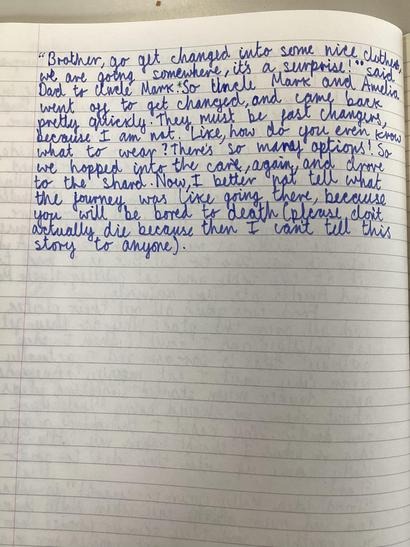 "Brother, go get changed into some nice clothes,
we are going somewhere, it's a surprise!" said
Dad to Uncle Mark. So Uncle Mark and Amelia
went off to get changed, and came back
pretty quickly. They must be fast changers,
because I am not. Like, how do you even know
what to wear? There's so many options! So
we hopped into the care, again, and drove
to the shard. Now, I better not tell what
the journey was like going there, because
you will be bored to death (please don't
actually die because then I can't tell this
story to anyone).